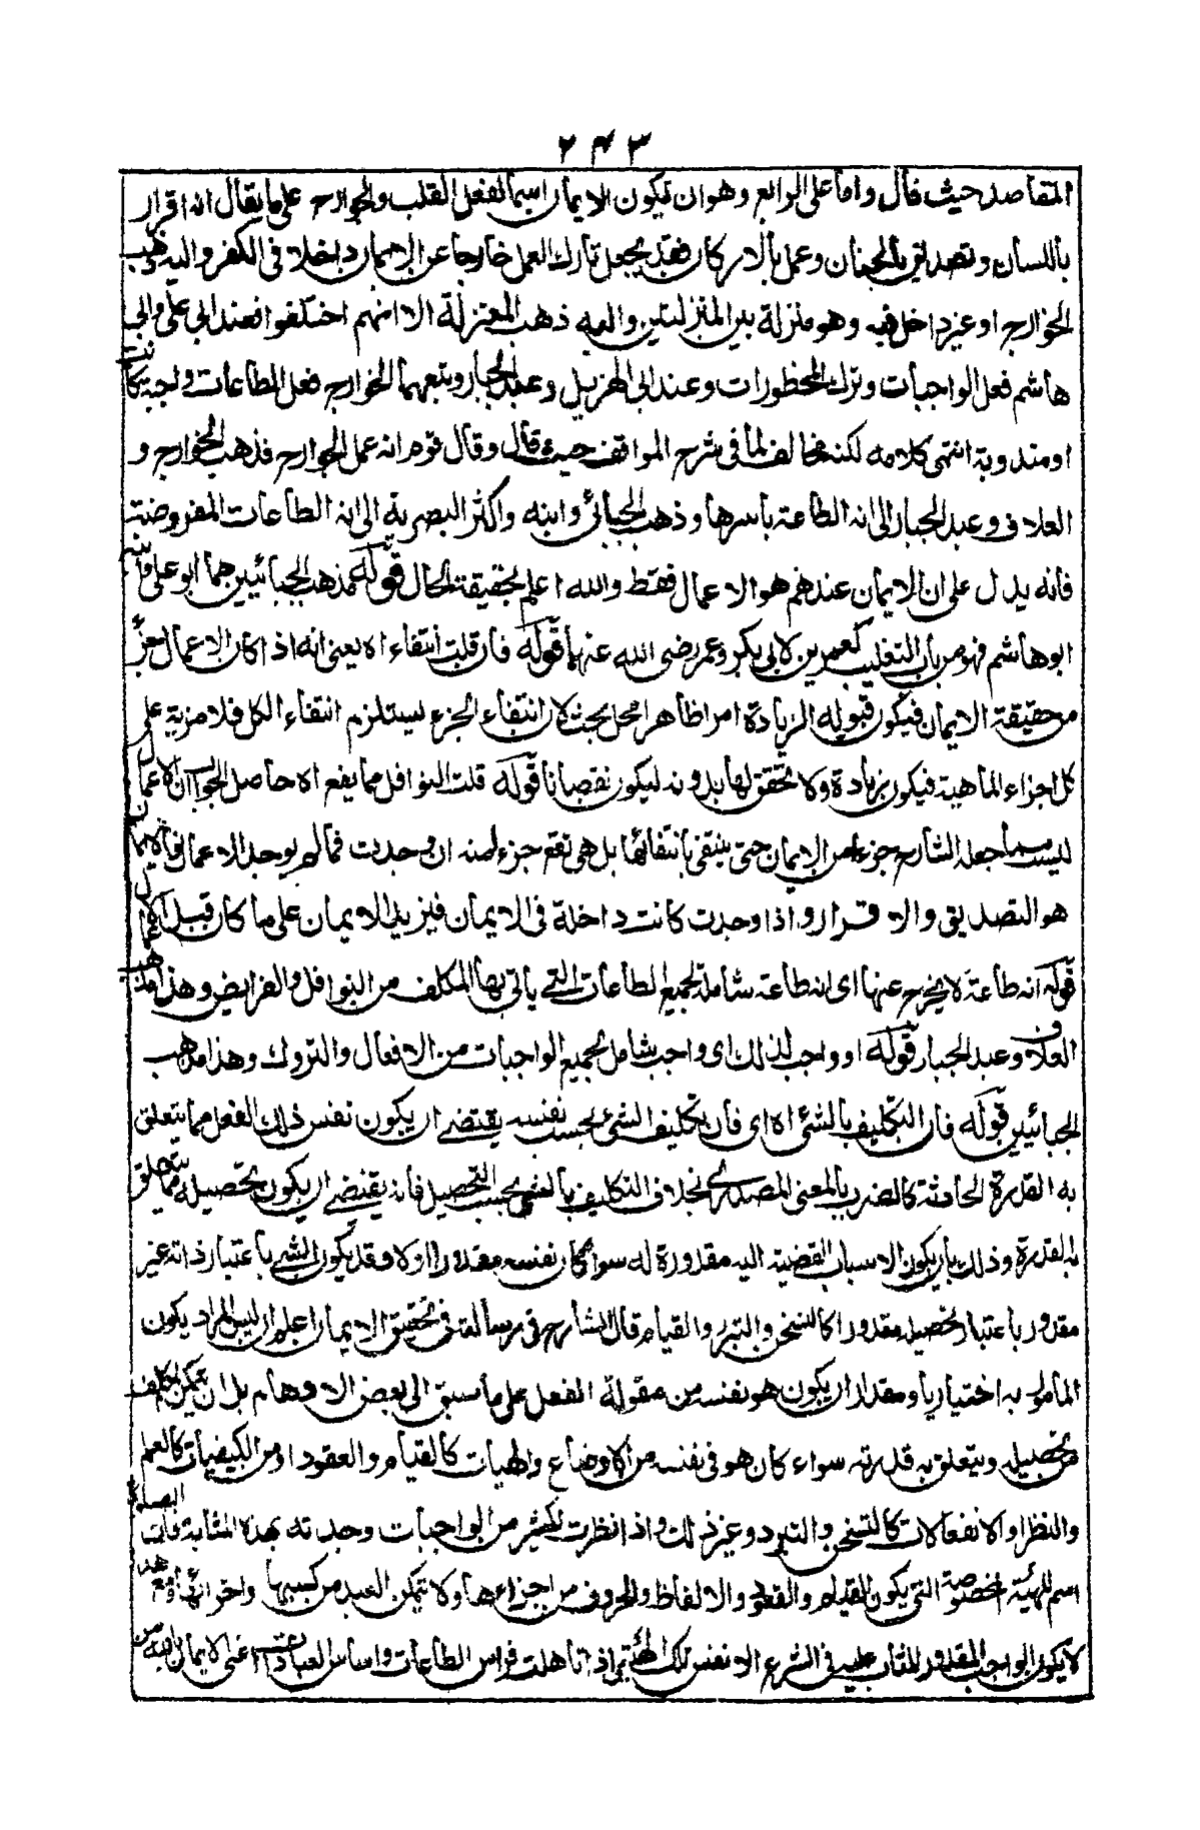 ٢٤٣
المقاصد حيث قال واما على الرابع وهو ان يكون الايمان اسما لفعل القلب والجوارح على ما يقال انه اقرار
باللسان وتصديق بالجنان وعمل بالاركان فقد يجعل تارك العمل خارجا عن الايمان داخلا في الكفر واليه ذهب
الخوارج او غير داخل فيه وهو منزلة بين المنزلتين واليه ذهب المعتزلة الا انهم اختلفوا فعند ابى على وابى
هاشم فعل الواجبات وترك المحظورات وعند ابى الهزيل وعبد الجبار وتبعهما الخوارج فعل الطاعات واجبة كانت
او مندوبة انتهى كلامه لكنه مخالف لما في شرح المواقف حيث قال وقال قوم انه عمل الجوارح فذهب الخوارج و
العلاف وعبد الجبار الى انه الطاعة باسرها وذهب الجبائى وابنه واكثر البصرية الى انه الطاعات المفروضة
فانه يدل على ان الايمان عندهم هو الاعمال فقط والله اعلم بحقيقة الحال قوله مذهب الجبائيين هما ابو على وابنه
ابو هاشم فهو من باب التغليب كعمرين لابى بكر وعمر رضى الله عنهما قوله فان قلت انتفاء اه يعنى انه اذا كان الاعمال جزء
من حقيقة الايمان فيكون قبوله الزيادة امرا ظاهرا محل بحث لان انتفاء الجزء يستلزم انتفاء الكل فلا مزية على
كل اجزاء الماهية فيكون زيادة ولا تحقق لها بدونه ليكون نقصانا قوله قلت النوافل مما يفع اه حاصل الجواب ان الاعمال
ليست مما جعله الشارع جزء من الايمان حتى ينتفى بانتفائها بل هى تقع جزء منه ان وجدت فما لم يوجد الاعمال فالايمان
هو التصديق والاقرار واذا وجدت كانت داخلة في الايمان فيزيد الايمان على ما كان قبل الاعمال
قوله انه طاعة لا يخرج عنها اى انه طاعة شاملة لجميع الطاعات التى ياتى بها المكلف من النوافل والفرايض وهذا مذهب
العلاف وعبد الجبار قوله او واجب لذلك اى واجب شامل لجميع الواجبات من الافعال والتروك وهذا مذهب
الجبائيين قوله فان التكليف بالشئ اه اى فان تكليف الشئ بحسب نفسه يقتضى ان يكون نفس ذلك الفعل مما يتعلق
به القدرة الحادثة كالضرب بالمعنى المصدرى بخلاف التكليف بالشئ بحسب التحصيل فانه يقتضى ان يكون تحصيله مما يتعلق
به القدرة وذلك بان يكون الاسباب المفضية اليه مقدورة له سواء كان نفسه مقدورا اولا وقد يكون الشئ باعتبار ذاته غير
مقدور باعتبار تحصيله مقدورا كالتسخن والتبرد والقيام قال الشارح في رسالته في تحقيق الايمان اعلم ان ليس المراد بكون
المامور به اختياريا ومقدورا ان يكون هو نفسه من مقولة الفعل على ما سبق الى بعض الاوهام بل ان يتمكن المكلف
من تحصيله ويتعلق به قدرته سواء كان هو في نفسه من الاوضاع والهيات كالقيام والقعود او من الكيفيات كالعلم
والنظر او الانفعالات كالتسخن والتبرد وغير ذلك واذا نظرت لكثير من الواجبات وجدته بهذه المثابة فان الصلوة
اسم للهيئة المخصوصة التى يكون القيام والقعود والالفاظ والحروف من اجزاءها ولا يتمكن العبد من كسبها واجزائها ومع هذا
لا يكون الواجب المقدور المثاب عليه في الشرع الا نفس تلك الهيئة واذا تاملت فراس الطاعات واساس العبادات اعنى الايمان بالله من